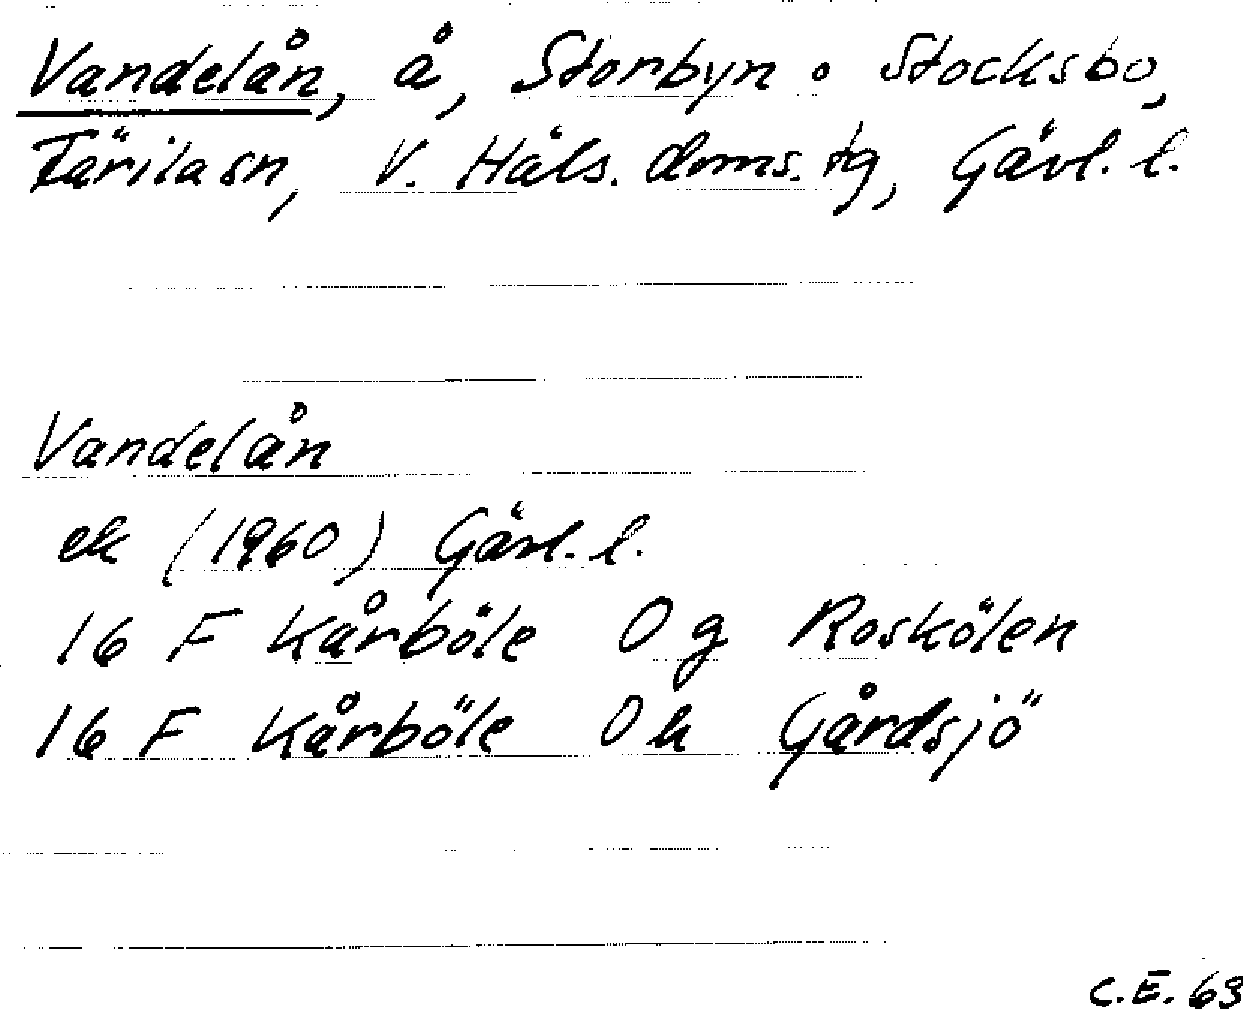 Vandelån, å, Storbyn o Stocksbo,
Färila sn, V. Häls. doms. tg, Gävl. l.
Vandelån
ek (1960) Gävl. l.
16 F Kårböle 0 g Roskölen
16 F Kårböle 0 h Gårdsjö
C.E. 63